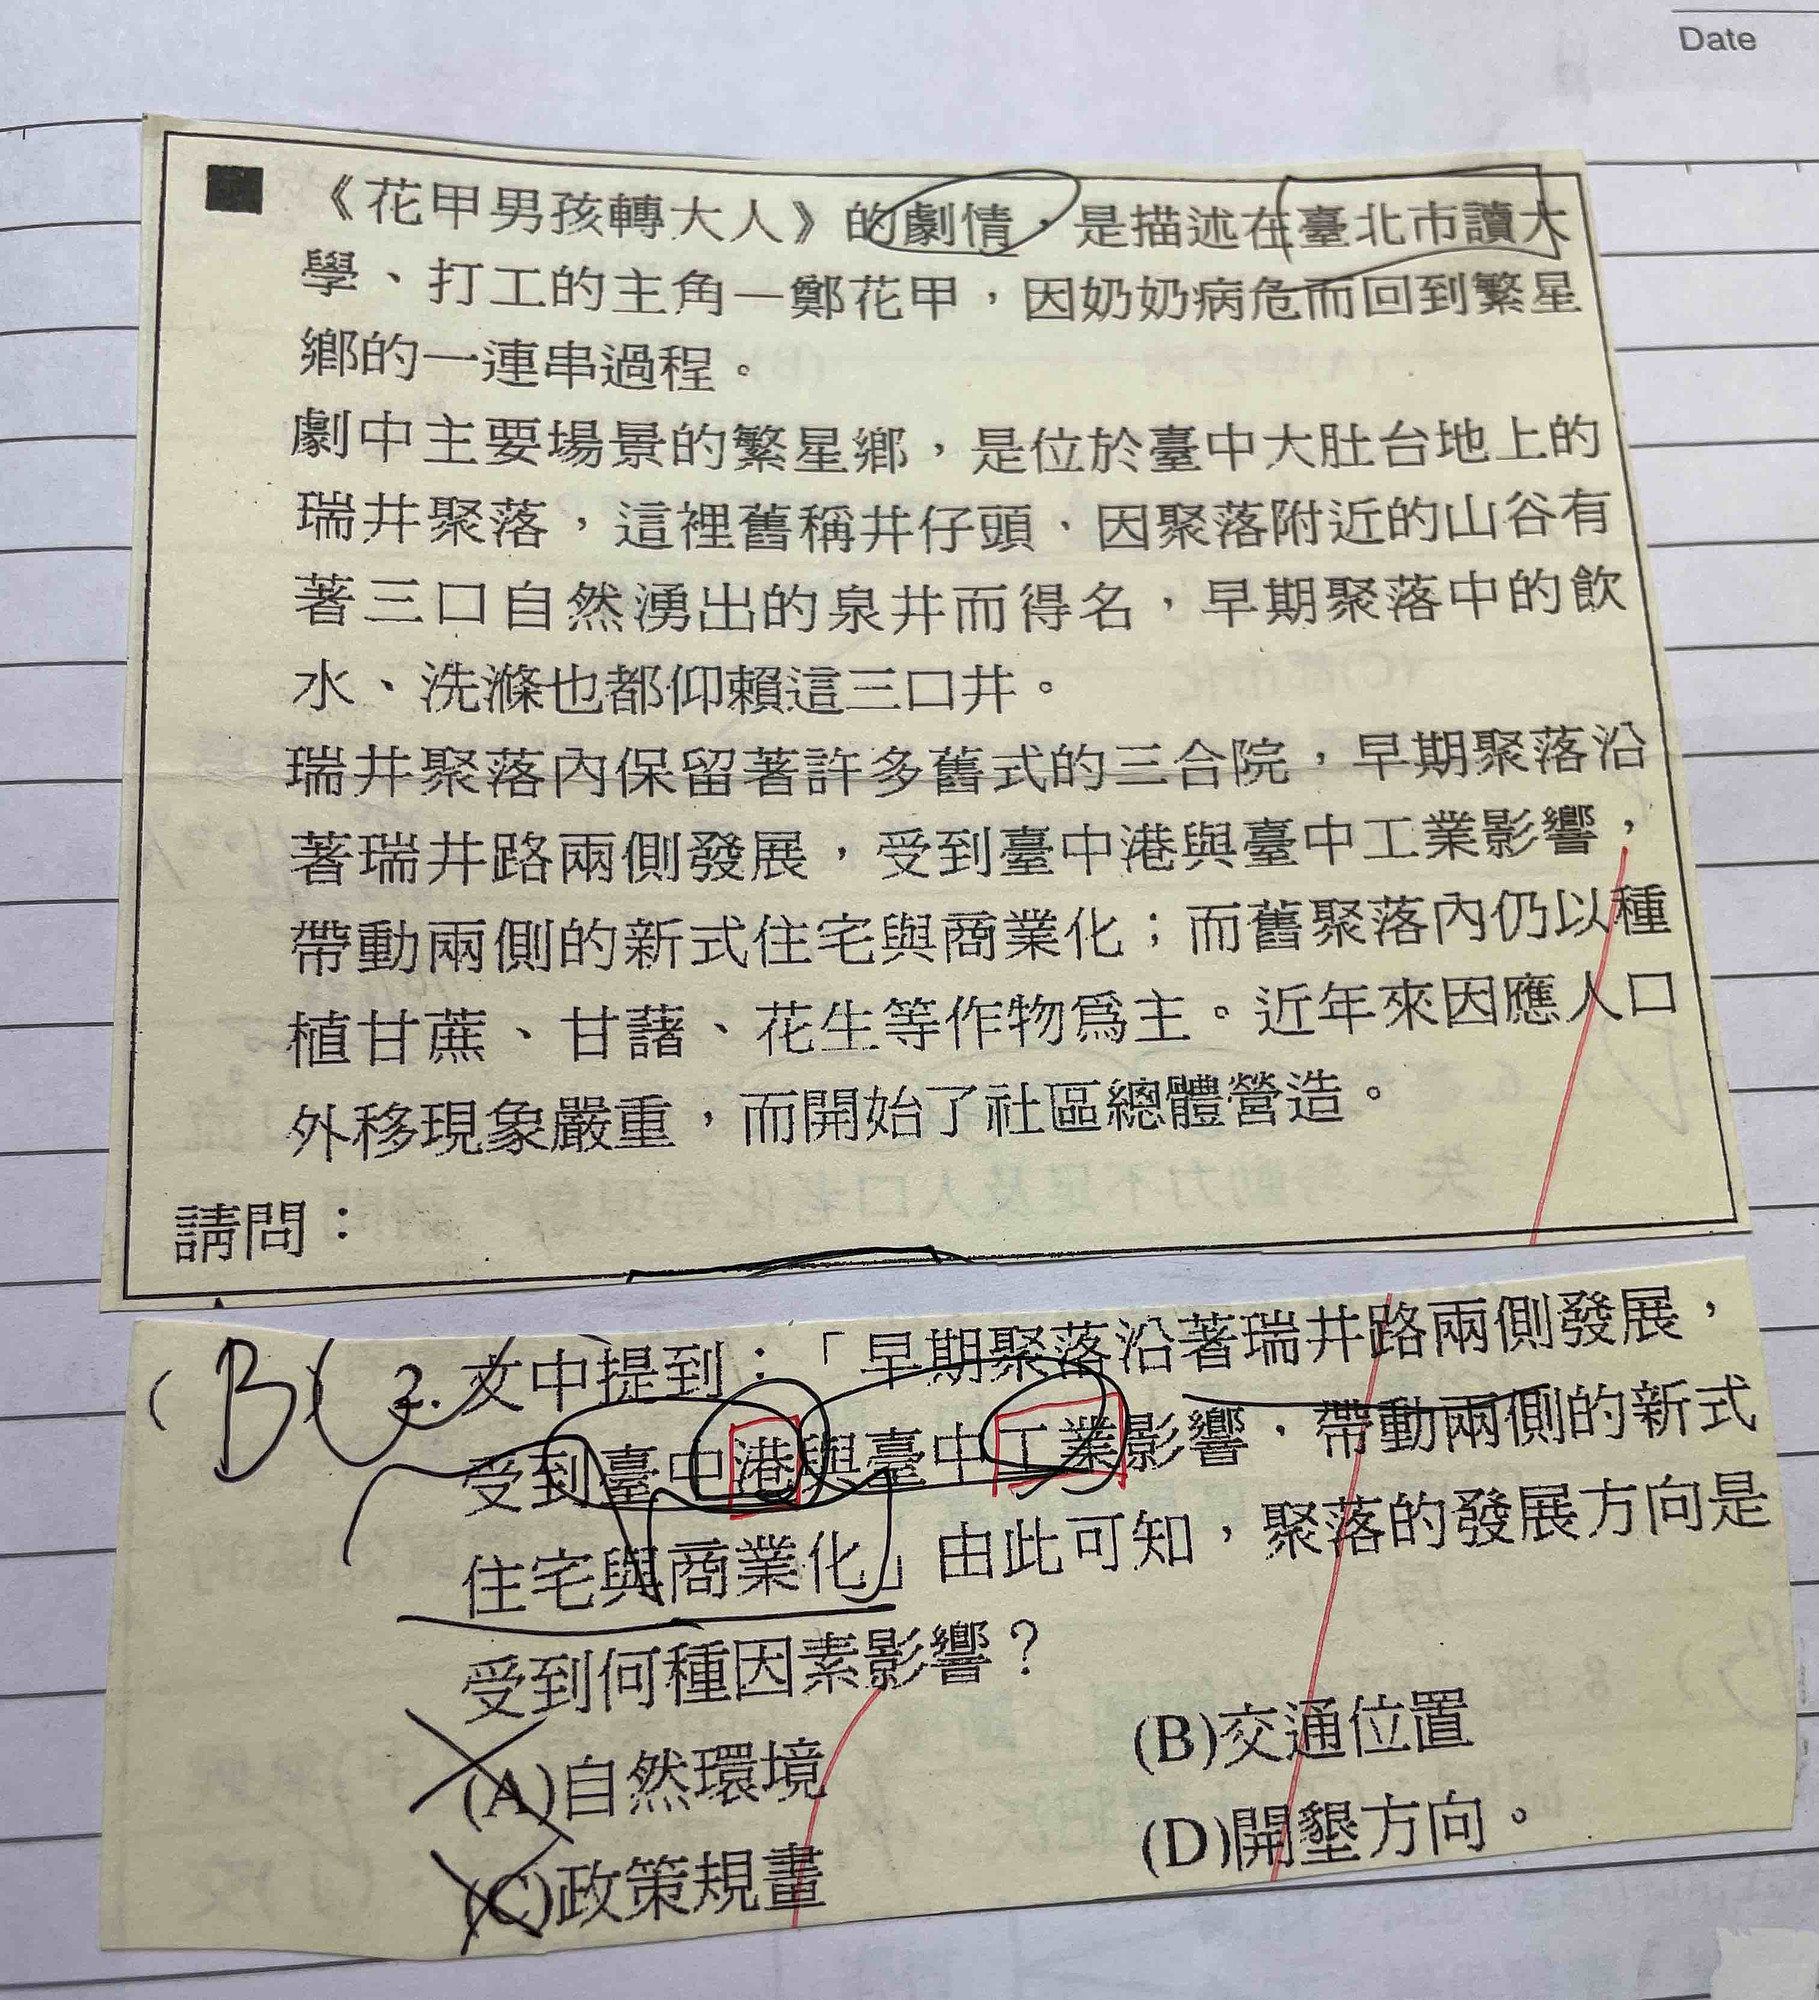 Date
■ 《花甲男孩轉大人》的劇情，是描述在臺北市讀大
學、打工的主角—鄭花甲，因奶奶病危而回到繁星
鄉的一連串過程。
劇中主要場景的繁星鄉，是位於臺中大肚台地上的
瑞井聚落，這裡舊稱井仔頭，因聚落附近的山谷有
著三口自然湧出的泉井而得名，早期聚落中的飲
水、洗滌也都仰賴這三口井。
瑞井聚落內保留著許多舊式的三合院，早期聚落沿
著瑞井路兩側發展，受到臺中港與臺中工業影響，
帶動兩側的新式住宅與商業化；而舊聚落內仍以種
植甘蔗、甘藷、花生等作物爲主。近年來因應人口
外移現象嚴重，而開始了社區總體營造。
請問：
(B) 2. 文中提到：「早期聚落沿著瑞井路兩側發展，
受到臺中港與臺中工業影響，帶動兩側的新式
住宅與商業化」由此可知，聚落的發展方向是
受到何種因素影響？
(A)自然環境 (B)交通位置
(C)政策規畫 (D)開墾方向。